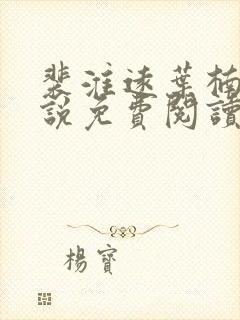 裴淮遠葉楠
說免費閱讀
楊寶